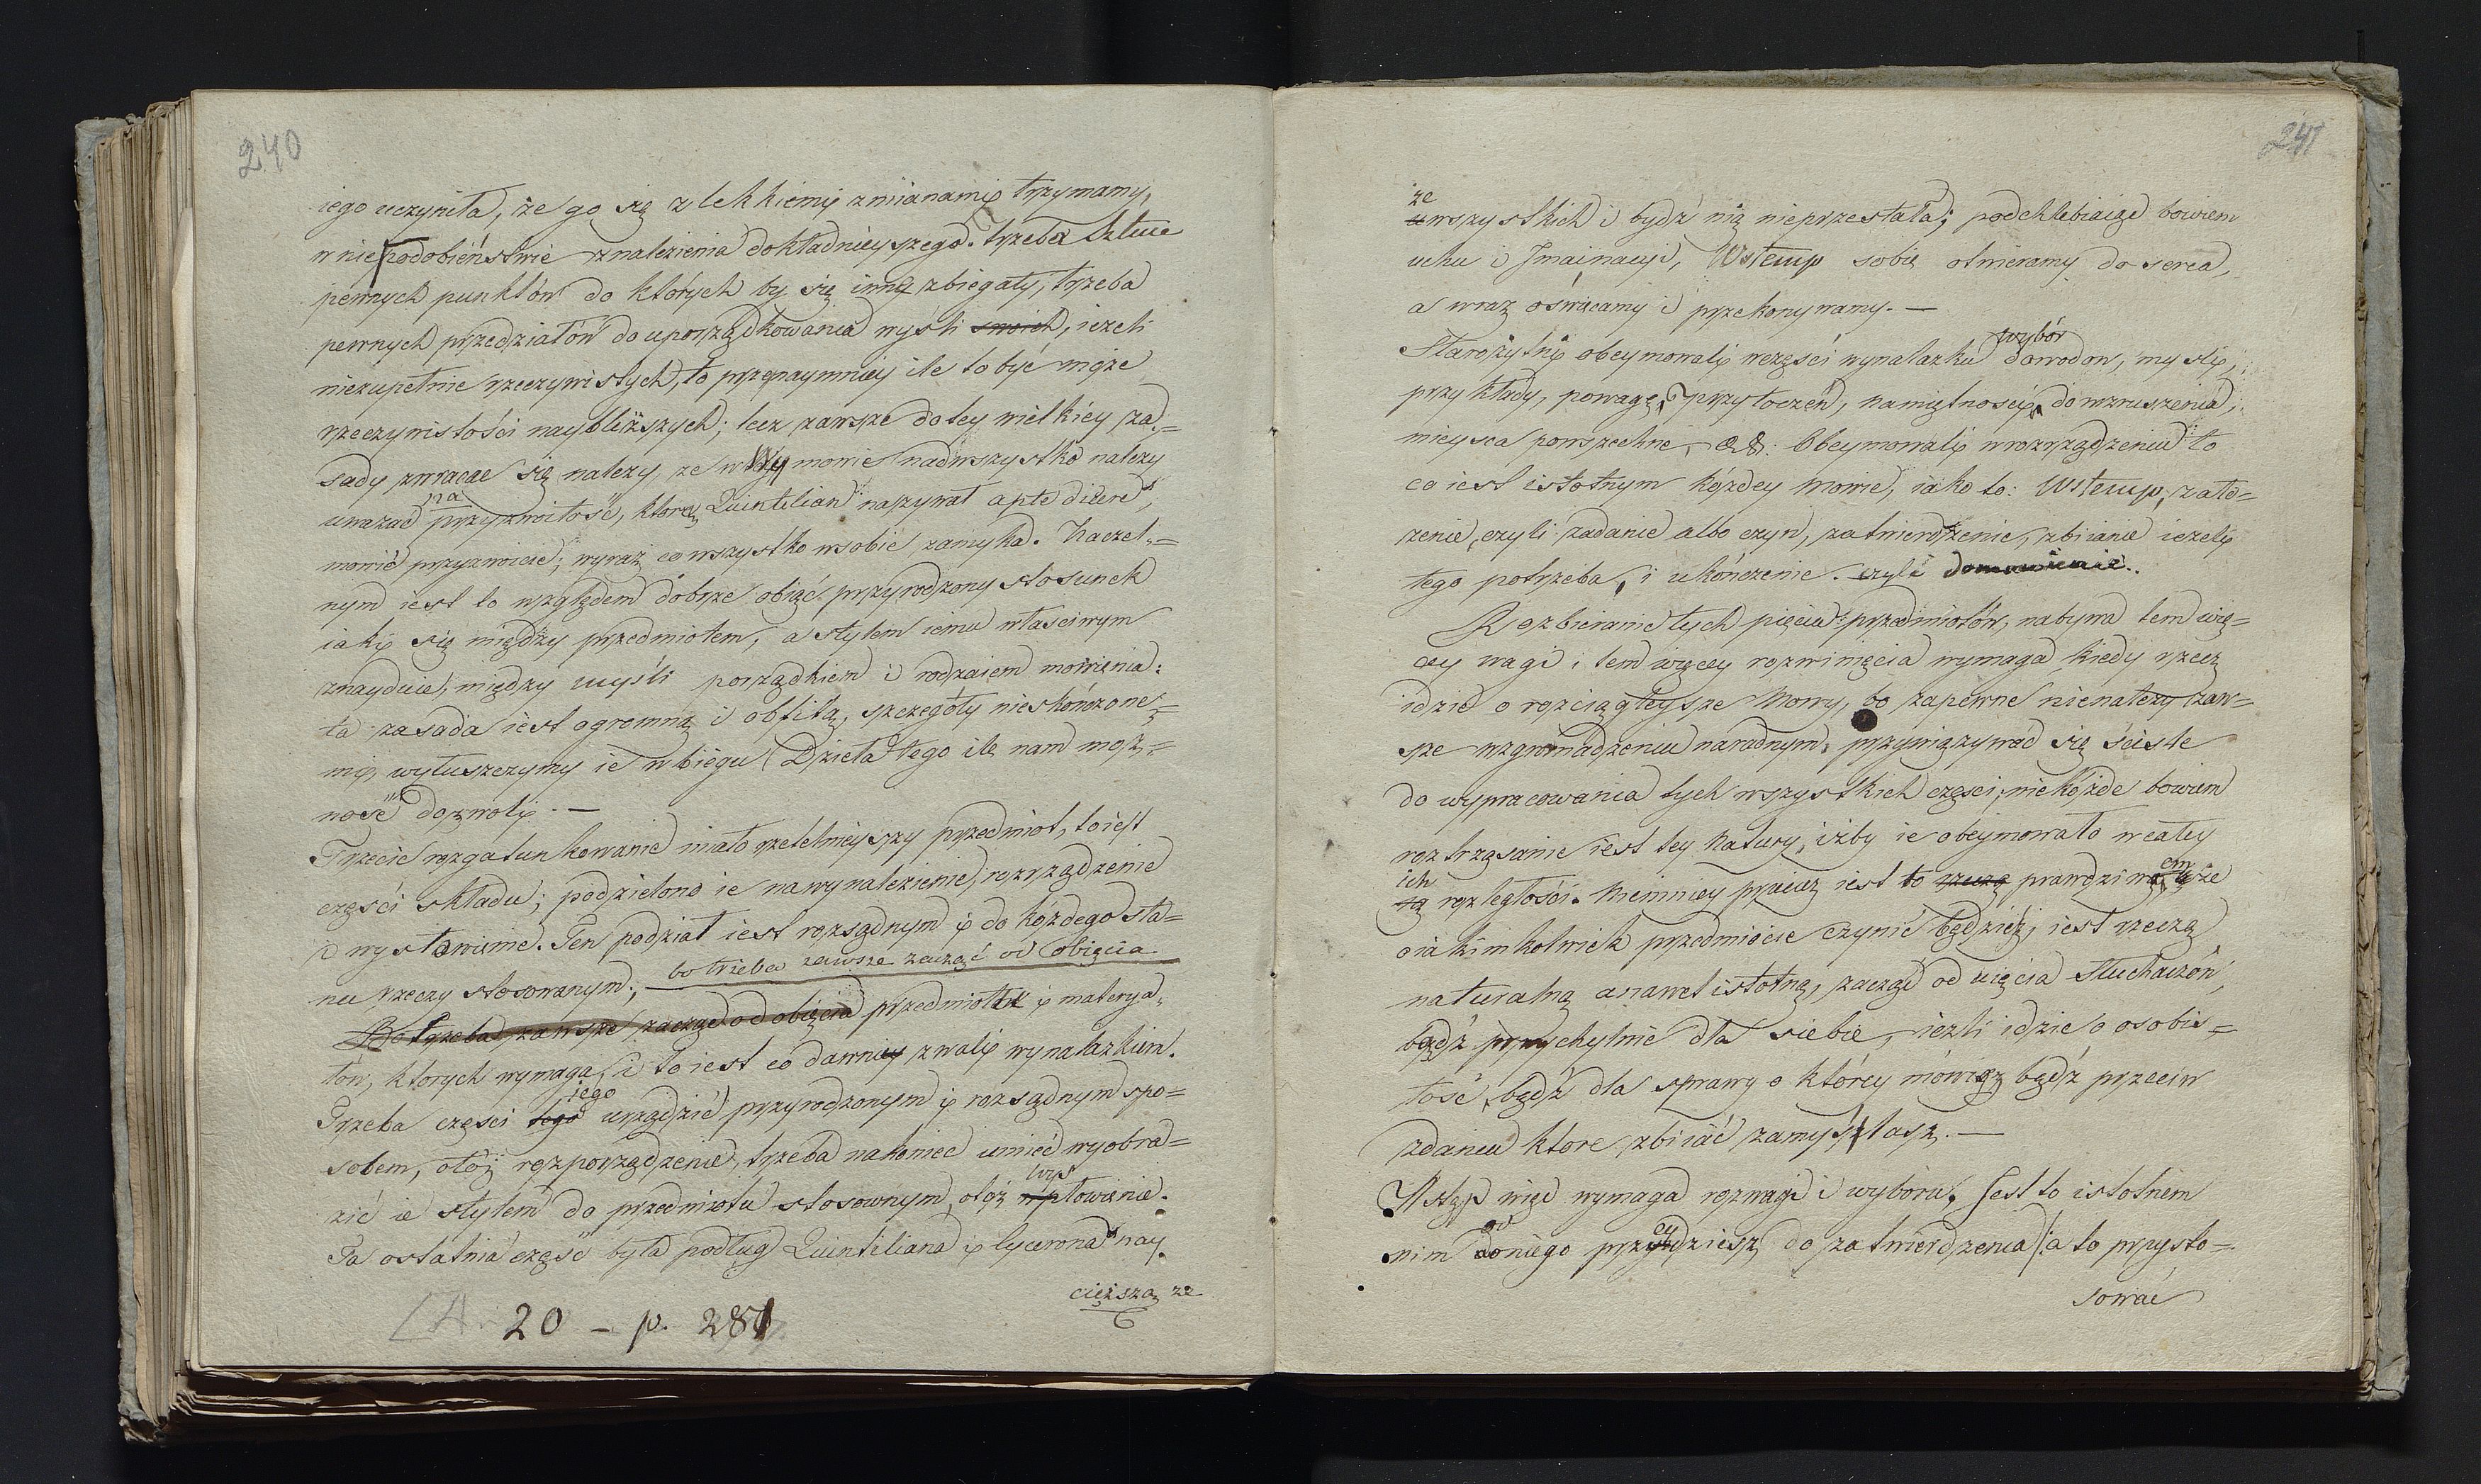 240
iego uczyniła, że go się z lekkiemi zmianami trzymamy,
w niepodobieństwie znalezienia dokładnieyszego. trzeba Sztuce
pewnych punktów do których by się inne zbiegały, trzeba
pewnych przedziałów do uporządkowania myśli swoich, ieżeli
niezupełnie rzeczywistych, to przynaymniey ile to być może
rzeczywistości naybliższych; lecz zawsze do tey wielkiéy za=
sady zwracać się należy, że w Wymowie nadwszystko należy
na
uważać przyzwoitość, którą Quintilian nazywał apte dicere,
mówić przyzwoicie; wyraz co wszystko w sobie zamyka. Naczel=
nym iest to względem dobrze obiąć przyrodzony stosunek
iaki się między przedmiotem, a stylem iemu właściwym
znayduie, między myśli porządkiem i rodzaiem mówienia:
ta zasada iest ogromną i obfitą, szczegóły nieskończone=
mi, wyłuszczymy ie w biegu Dzieła tego ile nam moż=
ność dozwoli. —
Trzecie rozgatunkowanie miało rzetelnieyszy przedmiot, to iest
części składu; podzielono ie na wynalezienie, rozrządzenie
i wysłowienie. Ten podział iest rozsądnym i do kóżdego sta=
nu rzeczy stosowanym; bo trzeba zawsze zacząć od obięcia
Bo trzeba zawsze zacząć od obięcia przedmiotu i materya=
łów, których wymaga, i to iest co dawniey zwali wynalazkiem.
iego
Trzeba części tego urządzić przyrodzonym i rozsądnym spo=
sobem, otóż rozporządzenie, trzeba nakoniec umieć wyobra=
wys
zić ie stylem do przedmiotu stosownym, otóż wysłowienie.
Ta ostatnia część była podług Quintiliana i Cycerona nay
cięższą ze
20 – p. 281
241
ze
wszystkich i bydź nią nieprzestała; podchlebiaiąc bowiem
uchu i Imainacyi, Wstemp sobie otwieramy do serca,
a wraz oświecamy i przekonywamy. —
wybór
Starożytni obeymowali w części wynalazku dowodow, myśli,
przykłady, powagę, przytoczeń, namiętności, do wzruszenia,
mieysca powszechne, &&. Obeymowali w rozrządzeniu to
co iest istotnym kóżdey Mowie, iako to: Wstemp, zało=
żenie, czyli zadanie albo czyn, zatwierdzenie, zbicianie ieżeli
tego potrzeba, i ukończenie. czyli domowienie.
Rozbieranie tych pięciu przedmiotów, nabywa tem wię=
cey wagi i tem więcey rozwinięcia wymaga kiedy rzecz
idzie o rozciągleysze Mowy, bo zapewne nienależy zaw=
sze w zgromadzeniu narodnym, przywiązywać się ściśle
do wypracowania tych wszystkich części, niekóżde bowiem
roztrząsanie iest tey Natury, iżby ie obeymowało w całey
ich em
tą rozległości. Niemniey przecież iest to rzeczą prawdziwą że
o iakimkolwiek przedmiocie czynić będziesz, iest rzeczą
naturalną a nawet istotną, zacząć od uięcia Słuchaczów,
bądź przychylnie dla siebie, ieżli idzie o osobis=
tość, bądź dla sprawy o którey mówisz bądź przeciw
zdaniu które zbiiać zamyślasz. —
Wstęp więc wymaga rozwagi i wyboru. Jest to istotnem
nim od niego przeydziesz do zatwierdzenia, a to przysto=
sować